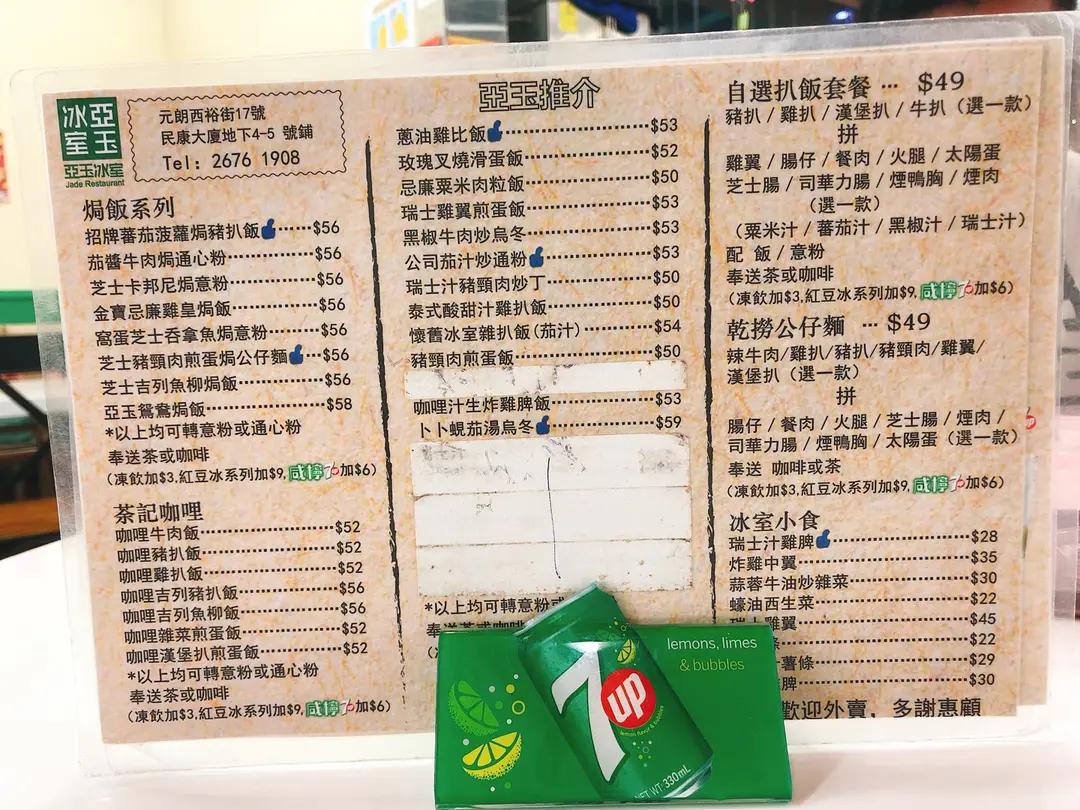 冰室
亞玉
亞玉冰室
Jade Restaurant
元朗西裕街17號
民康大廈地下4-5 號鋪
Tel: 2676 1908
焗飯系列
招牌蕃茄菠蘿焗豬扒飯 $56
茄醬牛肉焗通心粉 $56
芝士卡邦尼焗意粉 $56
金寶忌廉雞皇焗飯 $56
窩蛋芝士吞拿魚焗意粉 $56
芝士豬頸肉煎蛋焗公仔麵 $56
芝士吉列魚柳焗飯 $56
亞玉鴛鴦焗飯 $58
*以上均可轉意粉或通心粉
奉送茶或咖啡
(凍飲加$3,紅豆冰系列加$9,咸檸7加$6)
茶記咖哩
咖哩牛肉飯 $52
咖哩豬扒飯 $52
咖哩雞扒飯 $52
咖哩吉列豬扒飯 $56
咖哩吉列魚柳飯 $56
咖哩雜菜煎蛋飯 $52
咖哩漢堡扒煎蛋飯 $52
*以上均可轉意粉或通心粉
奉送茶或咖啡
(凍飲加$3,紅豆冰系列加$9,咸檸7加$6)
亞玉推介
蔥油雞比飯 $53
玫瑰叉燒滑蛋飯 $52
忌廉粟米肉粒飯 $50
瑞士雞翼煎蛋飯 $53
黑椒牛肉炒烏冬 $53
公司茄汁炒通粉 $53
瑞士汁豬頸肉炒丁 $50
泰式酸甜汁雞扒飯 $50
懷舊冰室雜扒飯(茄汁) $54
豬頸肉煎蛋飯 $50
咖哩汁生炸雞脾飯 $53
卜卜蜆茄湯烏冬 $59
*以上均可轉意粉或
奉送茶或咖啡
自選扒飯套餐 … $49
豬扒 / 雞扒 / 漢堡扒 / 牛扒 (選一款)
拼
雞翼 / 腸仔 / 餐肉 / 火腿 / 太陽蛋
芝士腸 / 司華力腸 / 煙鴨胸 / 煙肉
(選一款)
(粟米汁 / 蕃茄汁 / 黑椒汁 / 瑞士汁)
配 飯 / 意粉
奉送茶或咖啡
(凍飲加$3,紅豆冰系列加$9,咸檸7加$6)
乾撈公仔麵 … $49
辣牛肉/雞扒/豬扒/豬頸肉/雞翼/
漢堡扒 (選一款)
拼
腸仔 / 餐肉 / 火腿 / 芝士腸 / 煙肉 /
司華力腸 / 煙鴨胸 / 太陽蛋 (選一款)
奉送 咖啡或茶
(凍飲加$3,紅豆冰系列加$9,咸檸7加$6)
冰室小食
瑞士汁雞脾 $28
炸雞中翼 $35
蒜蓉牛油炒雜菜 $30
蠔油西生菜 $22
瑞士雞翼 $45
條 $22
薯條 $29
脾 $30
歡迎外賣，多謝惠顧
lemons, limes
& bubbles
7UP
lemon flavor & bubbles
NET WT 330mL